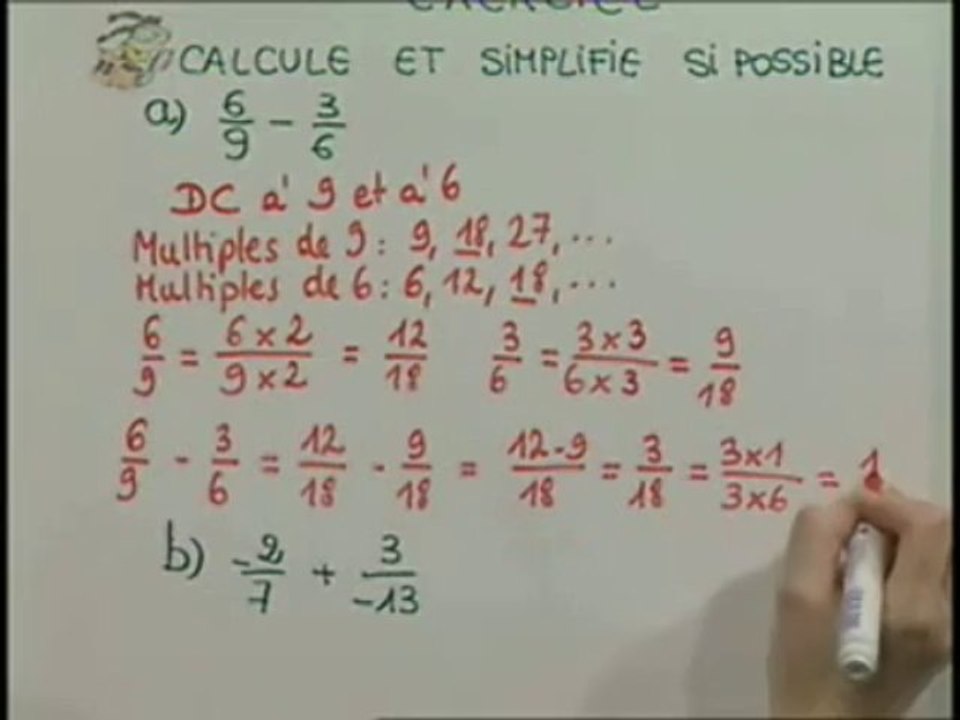 EXERCICE
CALCULE ET SIMPLIFIE SI POSSIBLE
a) 6/9 - 3/6
DC à 9 et à 6
Multiples de 9 : 9, 18, 27, ...
Multiples de 6 : 6, 12, 18, ...
6/9 = 6 x 2/9 x 2 = 12/18 3/6 = 3 x 3/6 x 3 = 9/18
6/9 - 3/6 = 12/18 - 9/18 = 12-9/18 = 3/18 = 3x1/3x6 = 1
b) -2/7 + 3/-13